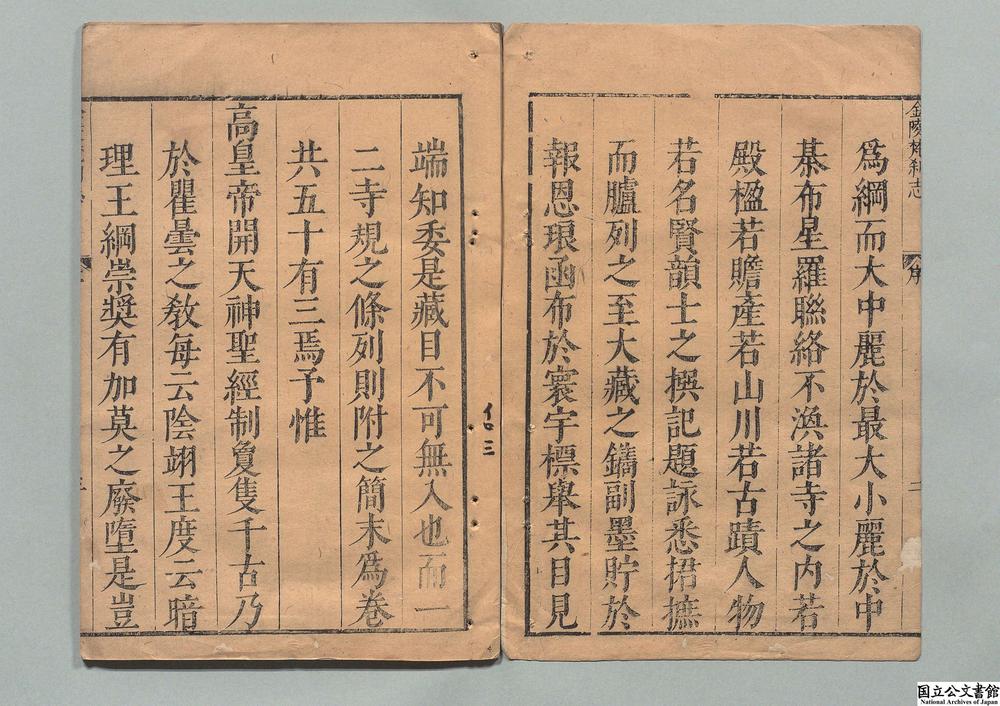 金陵梵刹志
序
二
為綱而大中麗於最大小麗於中
棊布星羅聯絡不渙諸寺之內若
殿楹若贍產若山川若古蹟人物
若名賢韻士之撰記題詠悉捃摭
而臚列之至大藏之鐫副墨貯於
報恩琅函布於寰宇標舉其目見
端知委是藏目不可無入也而一
二寺規之條列則附之簡末為卷
共五十有三焉予惟
高皇帝開天神聖經制敻隻千古乃
於瞿曇之教每云陰翊王度云暗
理王綱崇獎有加莫之廢墮是豈
国立公文書館
National Archives of Japan